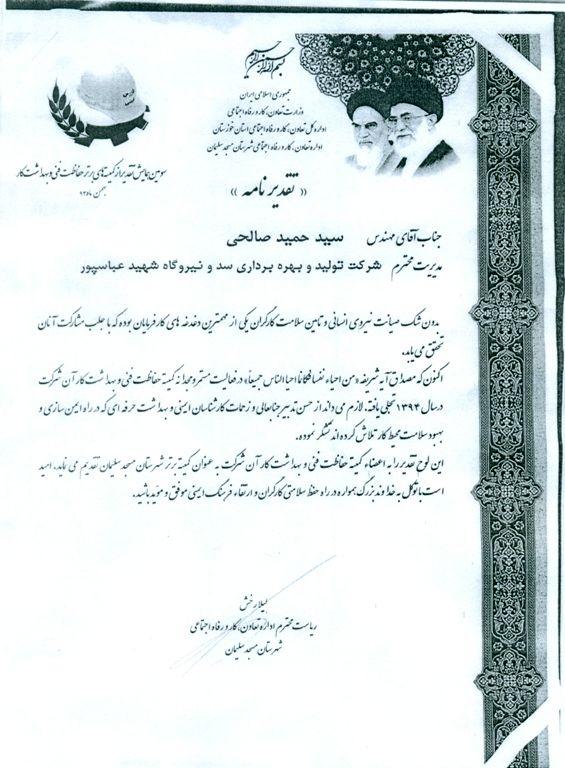 بسم الله الرحمن الرحیم
جمهوری اسلامی ایران
وزارت تعاون، کار و رفاه اجتماعی
اداره کل تعاون، کار و رفاه اجتماعی استان خوزستان
اداره تعاون، کار و رفاه اجتماعی شهرستان مسجدسلیمان
سومین همایش تقدیر از کمیته های برتر حفاظت فنی و بهداشت کار
بهمن ماه ۹۴
« تقدیر نامه »
جناب آقای مهندس سید حمید صالحی
مدیریت محترم شرکت تولید و بهره برداری سد و نیروگاه شهید عباسپور
بدون شک صیانت نیروی انسانی و تامین سلامت کارگران یکی از مهمترین دغدغه های کارفرمایان بوده که با جلب مشارکت آنان
تحقق می یابد.
اکنون که مصداق آیه شریفه «من احیاء نفسا فکانما احیا الناس جمیعا» در فعالیت مستمر و مجدانه کمیته حفاظت فنی و بهداشت کار آن شرکت
در سال ۱۳۹۴ تجلی یافته. لازم می داند از حسن تدبیر جنابعالی و زحمات کارشناسان ایمنی و بهداشت حرفه ای که در راه ایمن سازی و
بهبود سلامت محیط کار تلاش کرده اند تشکر نموده.
این لوح تقدیر را به اعضاء کمیته حفاظت فنی و بهداشت کار آن شرکت به عنوان کمیته برتر شهرستان مسجدسلیمان تقدیم می نماید. امید
است با توکل به خداوند بزرگ همواره در راه حفظ سلامتی کارگران و ارتقاء فرهنگ ایمنی موفق و موید باشید.
ریاست محترم اداره تعاون، کار و رفاه اجتماعی
شهرستان مسجدسلیمان